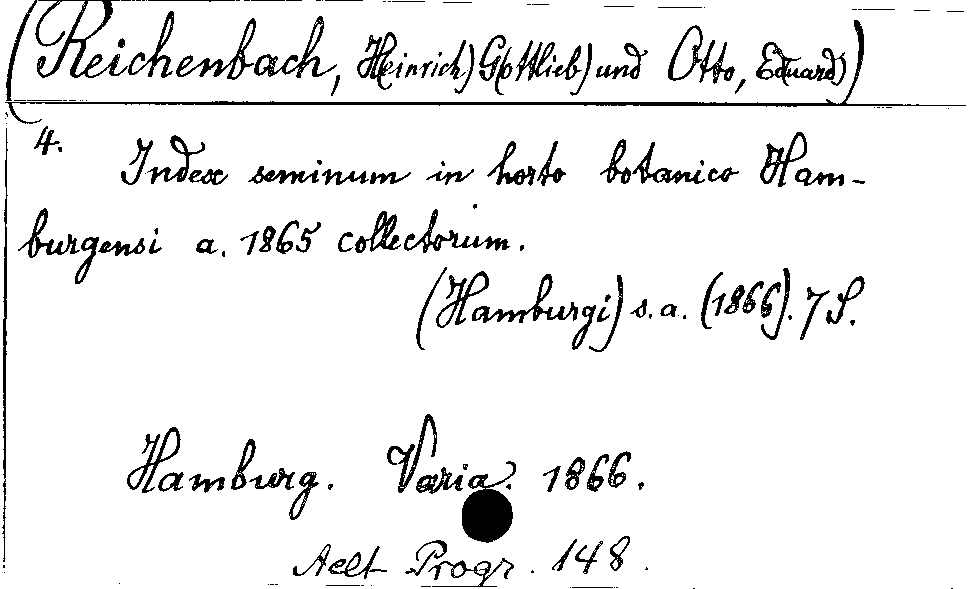 (Reichenbach, H(einrich) G(ottlieb) und Otto, Eduard)
4.
Index seminum in horto botanico Ham-
burgensi a. 1865 collectorum.
(Hamburgi) s. a. (1866). 7 S.
Hamburg. Varia. 1866.
Aelt Progr. 148.